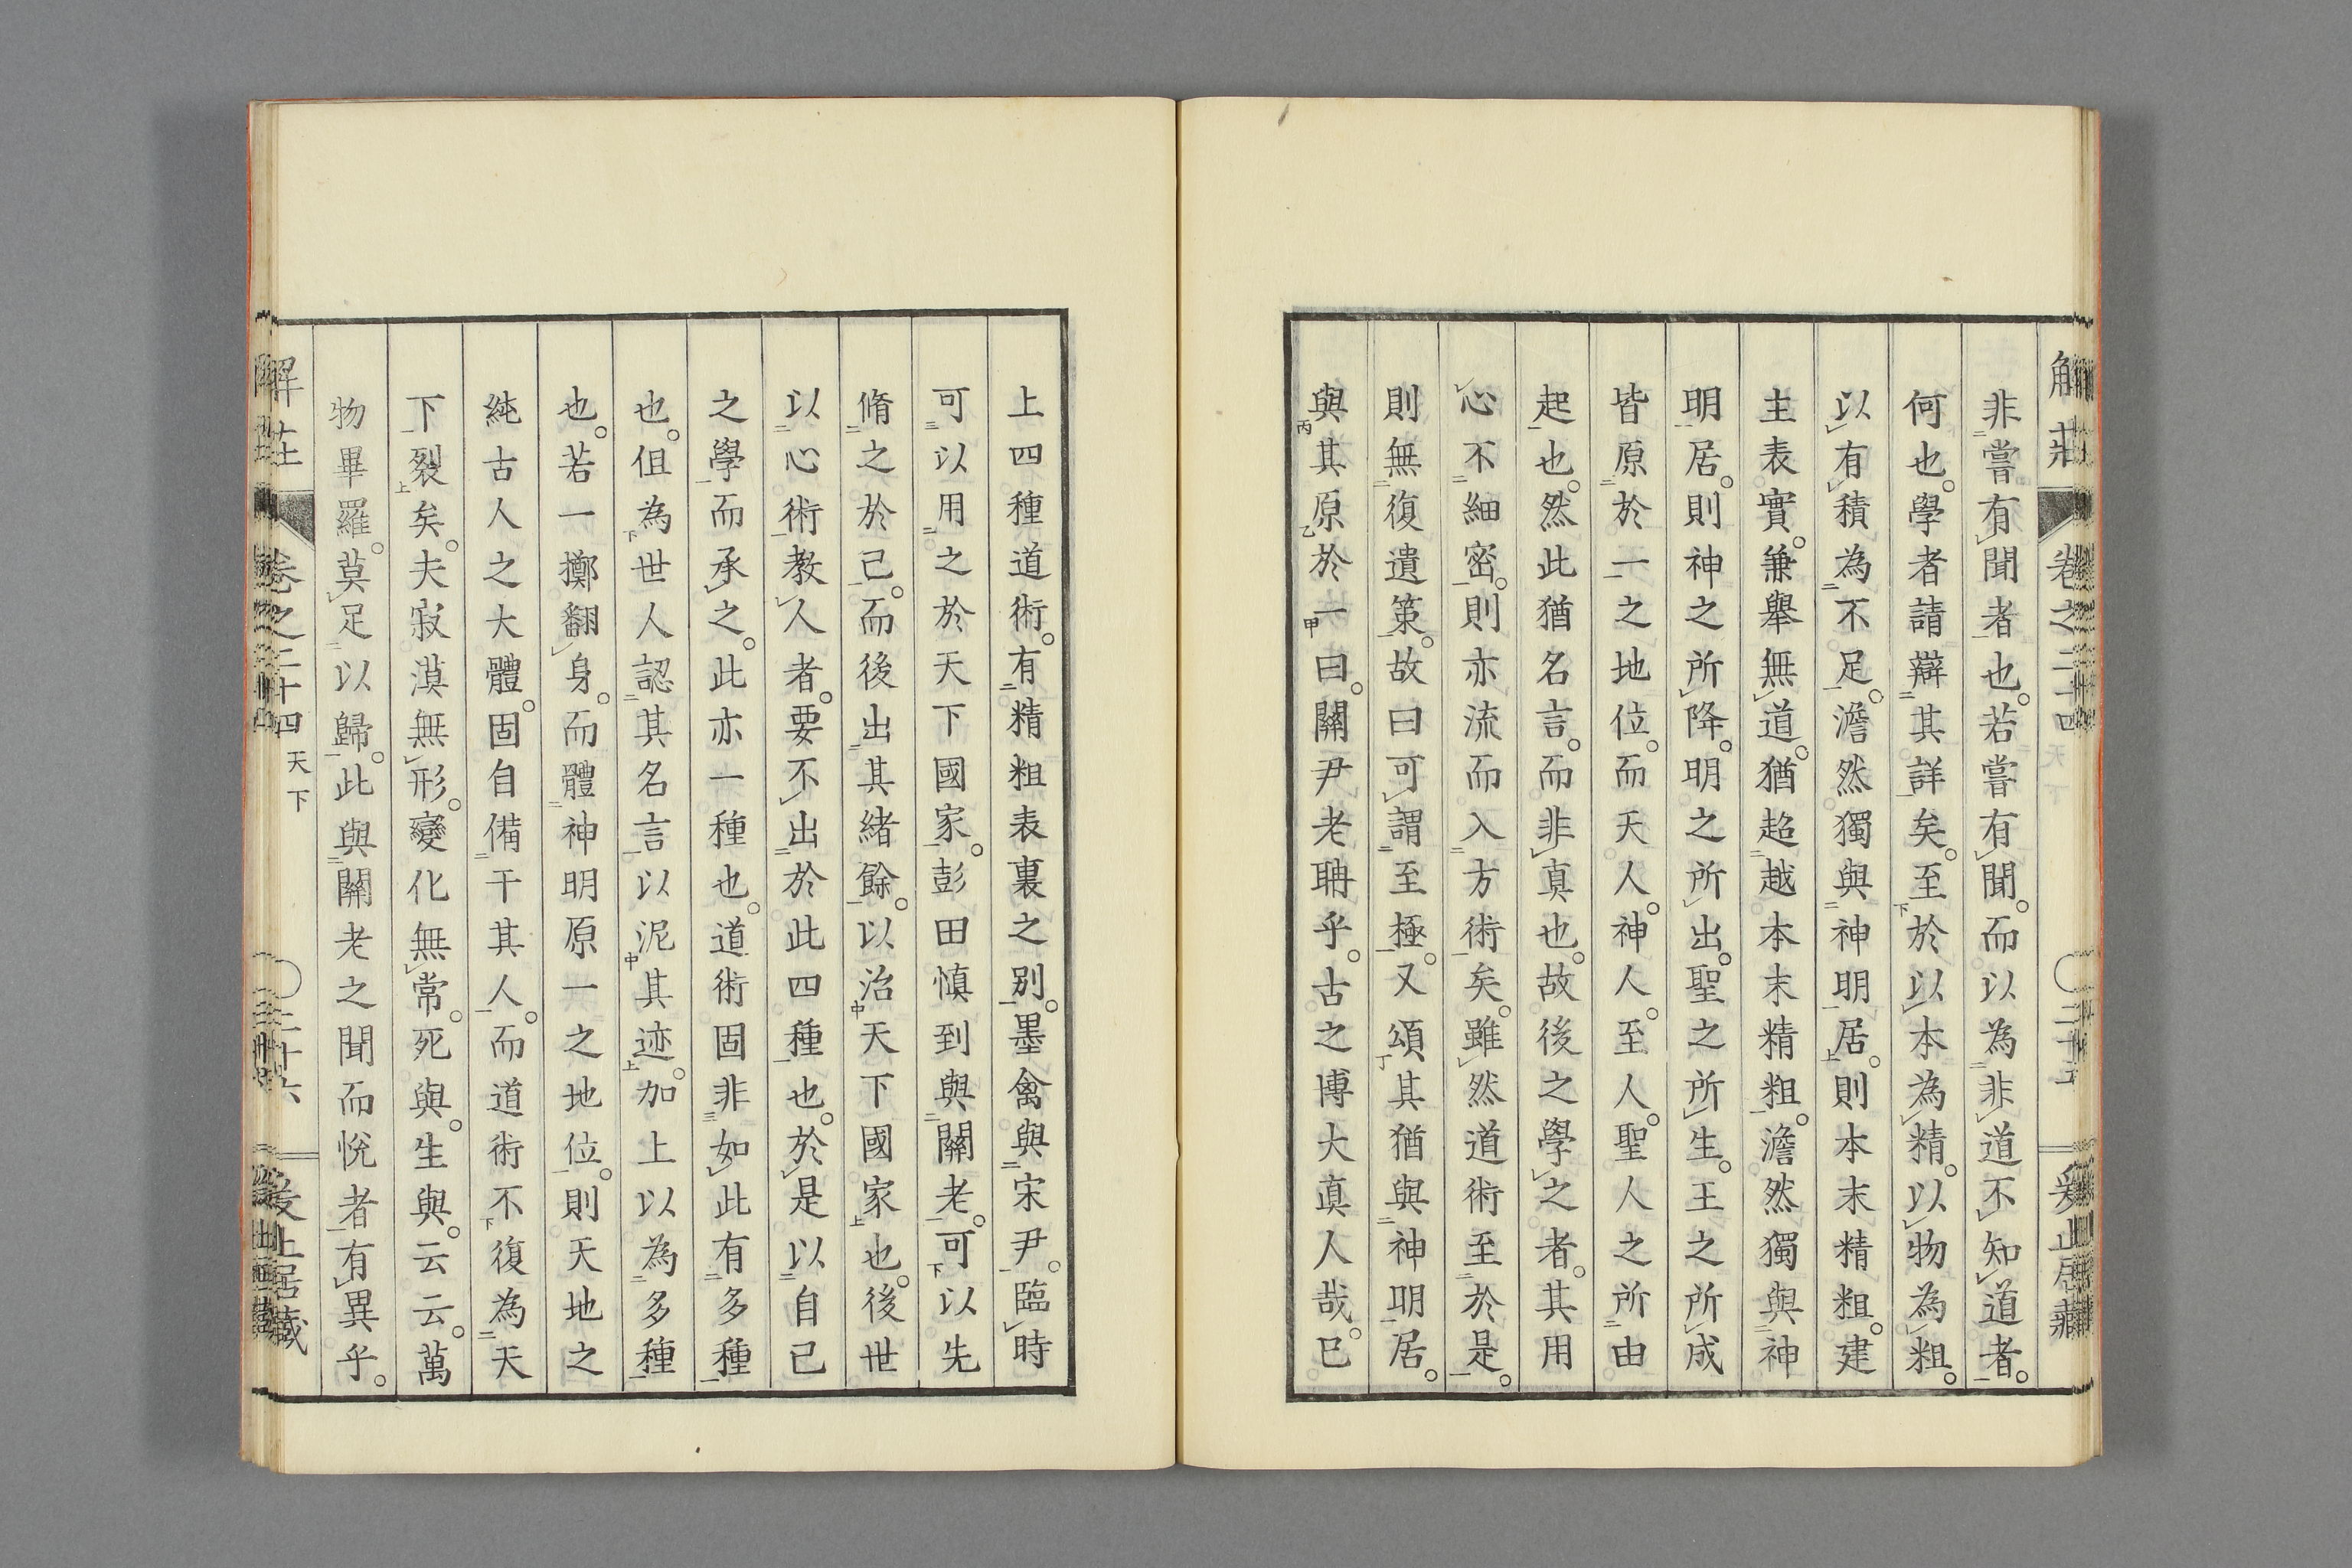 解莊 卷之二十四 天下 ○二十五
非嘗有聞者也。若嘗有聞。而以為非道不知道者。
何也。學者請辯其詳矣。至於以本為精。以物為粗。
以有積為不足。澹然獨與神明居。則本末精粗。建
主表實。兼舉無道。猶超越本末精粗。澹然獨與神
明居。則神之所降。明之所出。聖之所生。王之所成
皆原於一之地位。而天人。神人。至人。聖人之所由
起也。然此猶名言。而非真也。故後之學之者。其用
心不細密。則亦流而入方術矣。雖然道術至於是。
則無復遺策。故曰可謂至極。又頌其猶與神明居。
與其原於一曰。關尹老聃乎。古之博大真人哉。已
上四種道術。有精粗表裏之別。墨禽與宋尹。臨時
可以用之於天下國家。彭田慎到與關老。可以先
脩之於己。而後出其緒餘。以治天下國家也。後世
以心術教人者。要不出於此四種也。於是以自已
之學而承之。此亦一種也。道術固非如此有多種
也。伹為世人認其名言以泥其迹。加上以為多種
也。若一擲翻身。而體神明原一之地位。則天地之
純古人之大體。固自備干其人。而道術不復為天
下裂矣。夫寂漠無形。變化無常。死與。生與。云云。萬
物畢羅。莫足以歸。此與關老之聞而悅者有異乎。
解莊 卷之二十四 天下 ○二十六